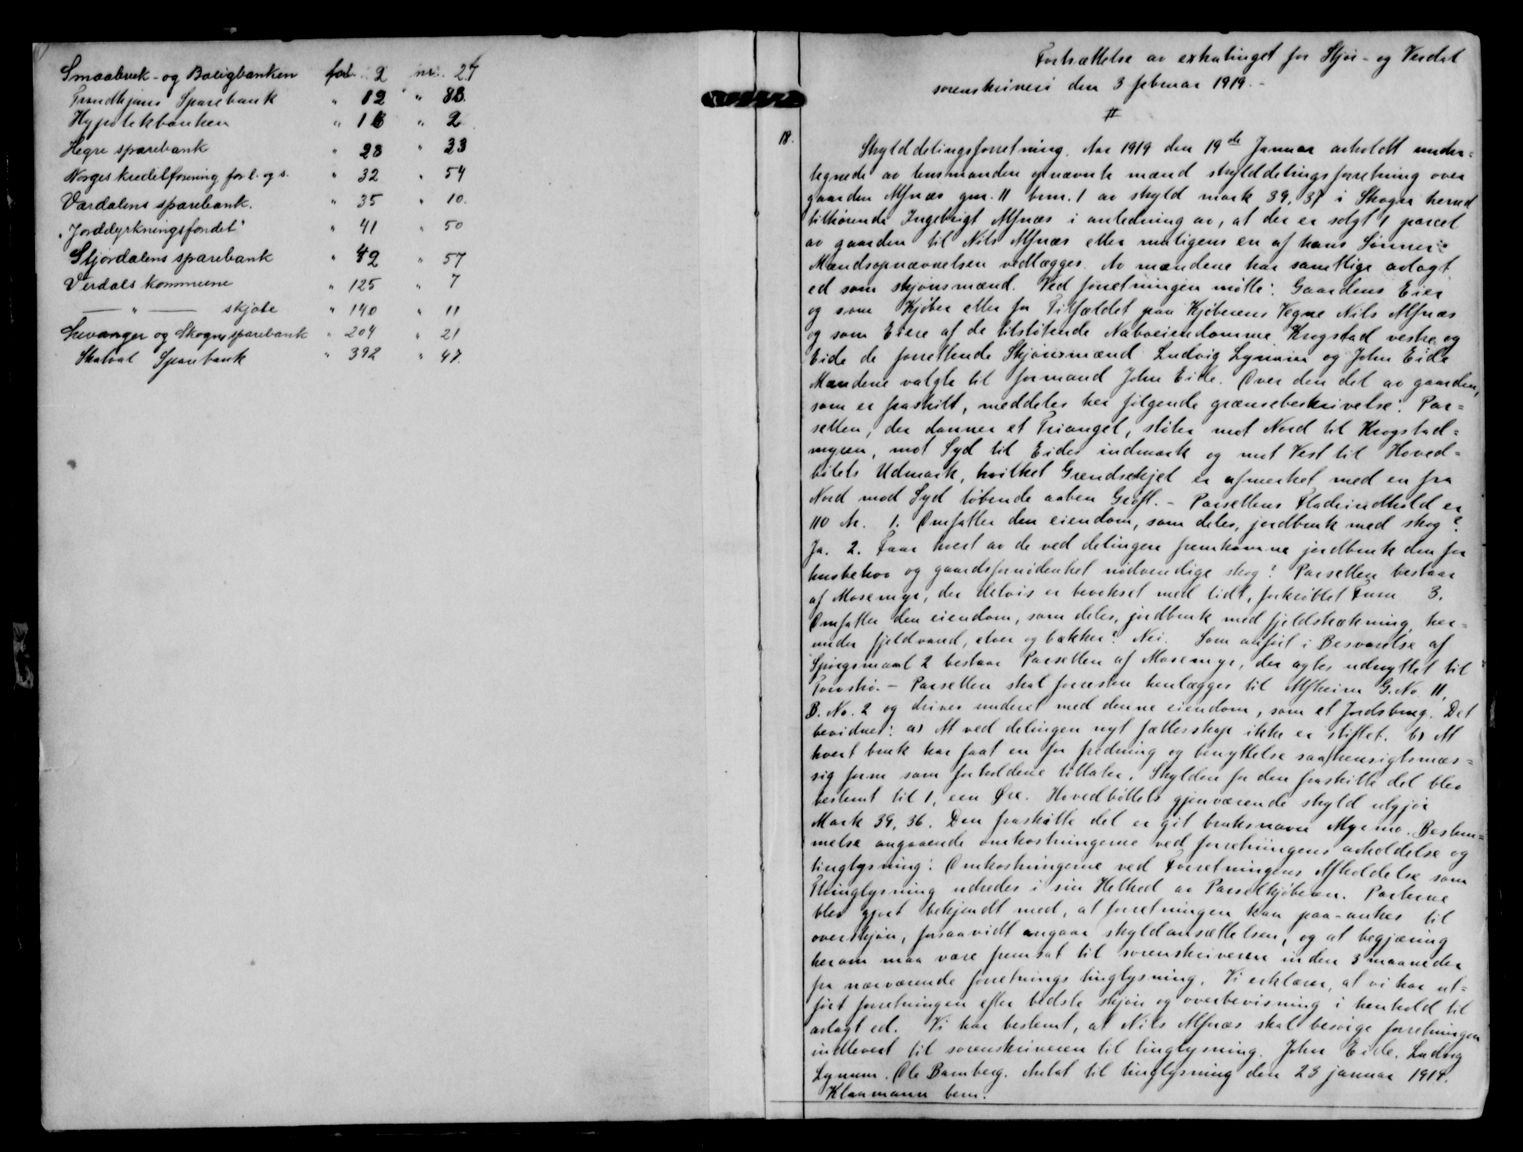 Smaabruk- og Boligbanken fol. 2 nr. 24
Trondhjems Sparebank " 12 " 83.
Hypotekbanken " 18 " 2
Hegre sparebank " 28 " 33
Norges kreditforening for l. og s. " 32 " 54
Værdalens sparebank. " 35 " 10.
"Jorddyrkningsfondet" " 41 " 50
Stjørdalens sparebank " 42 " 57
Verdals kommune " 125 " 7
— " — skjøte " 140 " 11
Levanger og Skogns sparebank " 204 " 21
Skatval Sparebank " 392 " 48.
Fortsættelse av extratinget for Stjør- og Verdal
sorenskriveri den 3 februar 1919.-
#
18. Skylddelingsforretning. Aar 1919 den 19de Januar avholdt under-
tegnede av lensmanden opnævnte mænd skylddelingsforretning over
gaarden Alfnæs gnr. 11 brnr. 1 av skyld mark 39, 37 i Skogn herred
tilhørende Ingebrigt Alfnæs i anledning av, at der er solgt 1 parcel
av gaarden til Nils Alfnæs eller muligens en af hans Sønner.
Mandsopnævnelsen vedlægges. Av mændene har samtlige avlagt
ed som skjønsmænd. Ved forretningen møtte: Gaardens Eier
og som Kjøber eller for Tilfældet paa Kjøberens Vegne Nils Alfnæs
og som Eiere af de tilstøtende Naboeiendomme Krogstad vestre og
Eide de forrettende Skjønsmænd Ludvig Lynum og John Eide
Mændene valgte til formand John Eide. Over den del av gaarden,
som er fraskilt, meddeles her følgende grænsebeskrivelse: Par-
sellen, der danner et Triangel, støter mot Nord til Krogstad-
myren, mot Syd til Eides indmark og mot Vest til Hoved-
bølets Udmark, hvilket Grændseskjel er afmerket med en fra
Nord mod Syd løbende aaben Grøft. - Parsellens Fladeindhold er
110 Ar. 1. Omfatter den eiendom, som deles, jordbruk med skog?
Ja. 2. Faar hvert av de ved delingen fremkomne jordbruk den for
husbehov og gaardsfornødenhet nødvendige skog? Parsellen bestaar
af Mosemyr, der delvis er bevokset med lidt, forkrøblet Furu 3.
Omfatter den eiendom, som deles, jordbruk med fjeldstrækning, her-
under fjeldvand, elver og bækker? Nei. Som anført i Besvarelse af
Spørgsmaal 2 bestaar Parsellen af Mosemyr, der agtes udnyttet til
Torvstrø. - Parsellen skal forresten henlægges til Alfheim G. No. 11,
B. No. 2 og drives underet med denne eiendom, som et Jordsbrug. Det
bevidnes: a) At ved delingen nyt fællesskap ikke er stiftet. b) At
hvert bruk har faat en for fredning og benyttelse saa hensigtsmæs-
sig form som forholdene tillater. Skylden for den fraskilte del blev
bestemt til 1, een Øre. Hovedbøllets gjenværende skyld utgjør
Mark 39, 36. Den fraskilte del er git bruksnavn Myrmo. Bestem-
melse angaaende omkostningerne ved forretningens avholdelse og
tinglysning: Omkostningerne ved Forretningens Afholdelse som
Thinglysning udredes i sin Helhed av Parselkjøberen. Parterne
blev gjort bekjendt med, at forretningen kan paa-ankes til
overskjøn, forsaavidt angaar skyldansættelsen, og at begjæring
herom maa være fremsat til sorenskriveren inden 3 maaneder
fra nærværende forretnings tinglysning. Vi erklærer, at vi har ut-
ført forretningen efter bedste skjøn og overbevisning i henhold til
avlagt ed. Vi har bestemt, at Nils Alfnæs skal besørge forretningen
indlevert til sorenskriveren til tinglysning. John Eide. Ludvig
Lynum. Ole Bamberg. Anlat til tinglysning den 23 januar 1919.
Klaumann bem.